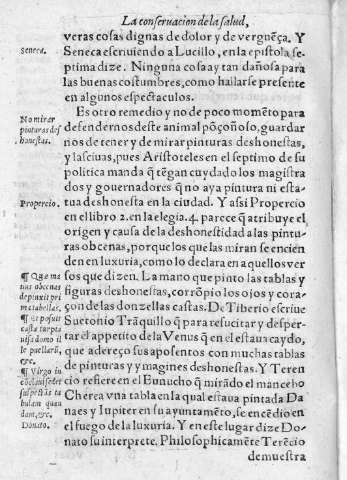 La conseruacion de la salud,
veras cosas dignas de dolor y de verguẽça. Y
Seneca.
Seneca escriuiendo a Lucillo, en la epistola se-
ptima dize. Ninguna cosa ay tan dañosa para
las buenas costumbres, como hallarse presente
en algunos espectaculos.
Es otro remedio y no de poco momẽto para
No mirar
pinturas des
honestas.
defendernos deste animal põçoñoso, guardar
nos de tener y de mirar pinturas deshonestas,
y lasciuas, pues Aristoteles en el septimo de su
politica manda q̃ tẽgan cuydado los magistra
dos y gouernadores q̃ no aya pintura ni esta-
Propercio.
tua deshonesta en la ciudad. Y assi Propercio
en el libro 2. en la elegia. 4. parece q̃ atribuye el
origen y causa de la deshonestidad a las pintu
ras obcenas, porque los que las miran se encien
den en luxuria, como lo declara en aquellos ver
¶ Quæ ma
nus obcenas
depinxit pri
ma tabellas.
sos que dizen. La mano que pinto las tablas y
figuras deshonestas, corrõpio los ojos y cora-
çon de las donzellas castas. De Tiberio escriue
¶ Et posuit
casta turpia
visa domo il
la puellarũ,
&c.
Suetonio Trãquillo q̃ para resucitar y desper-
tar el appetito de la Venus q̃ en el estaua caydo,
que adereço sus aposentos con muchas tablas
de pinturas y ymagines deshonestas. Y Teren
¶ Virgo in
cõclaui sedet
suspectãs ta
bulam quan
dam, &c.
cio refiere en el Eunucho q̃ mirãdo el mancebo
Cherea vna tabla en la qual estaua pintada Da
naes y Iupiter en su ayuntamẽto, se encẽdio en
Donato.
el fuego de la luxuria. Y en este lugar dize Do-
nato su interprete. Philosophicamẽte Terẽcio
demuestra